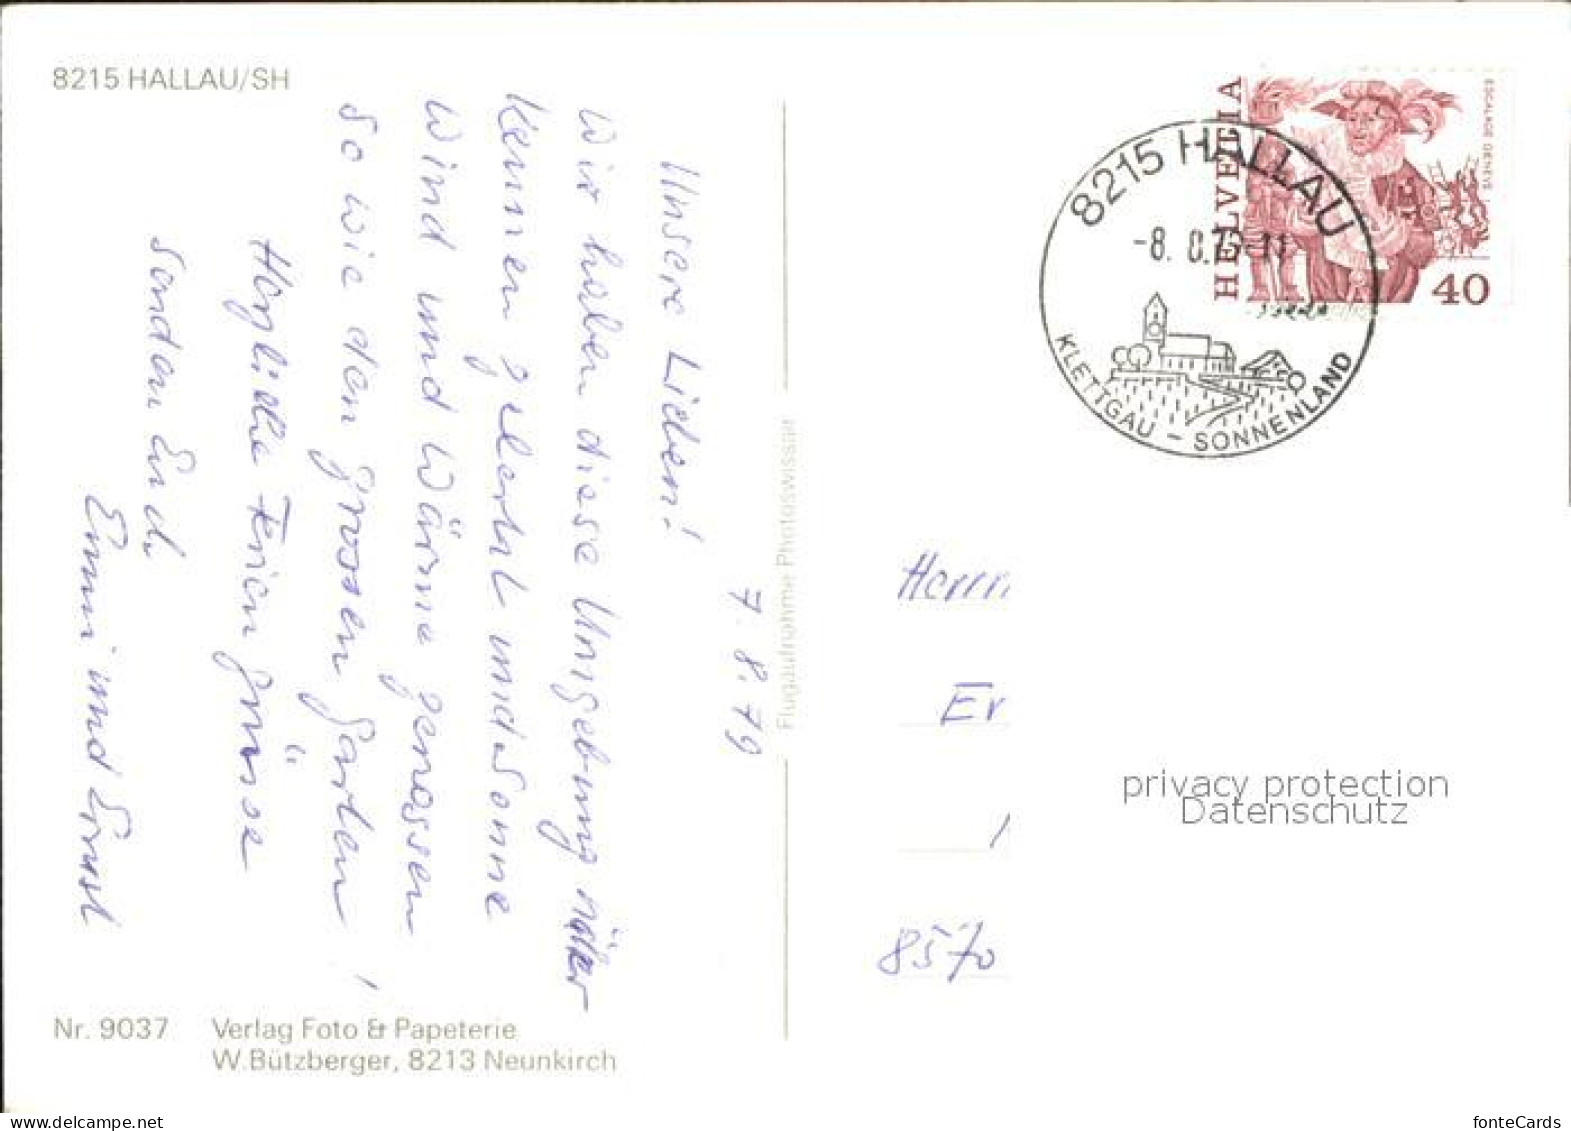 8215 HALLAU/SH
7. 8. 79
Unsere Lieben!
Wir haben diese Umgebung näher
kennen gelernt und Sonne
Wind und Wärme genossen
so wie den grossen Garten!
Herzliche Feriengrüsse
senden Euch
Emmi und Ernst
Nr. 9037 Verlag Foto & Papeterie
W. Bützberger, 8213 Neunkirch
Flugaufnahme Photoswissair
HELVETIA
ESCALADE GENEVE
40
8215 HALLAU
-8. 8.79-11
KLETTGAU - SONNENLAND
Herrn
Er
8570
privacy protection
Datenschutz
delcampe.net
fonteCards